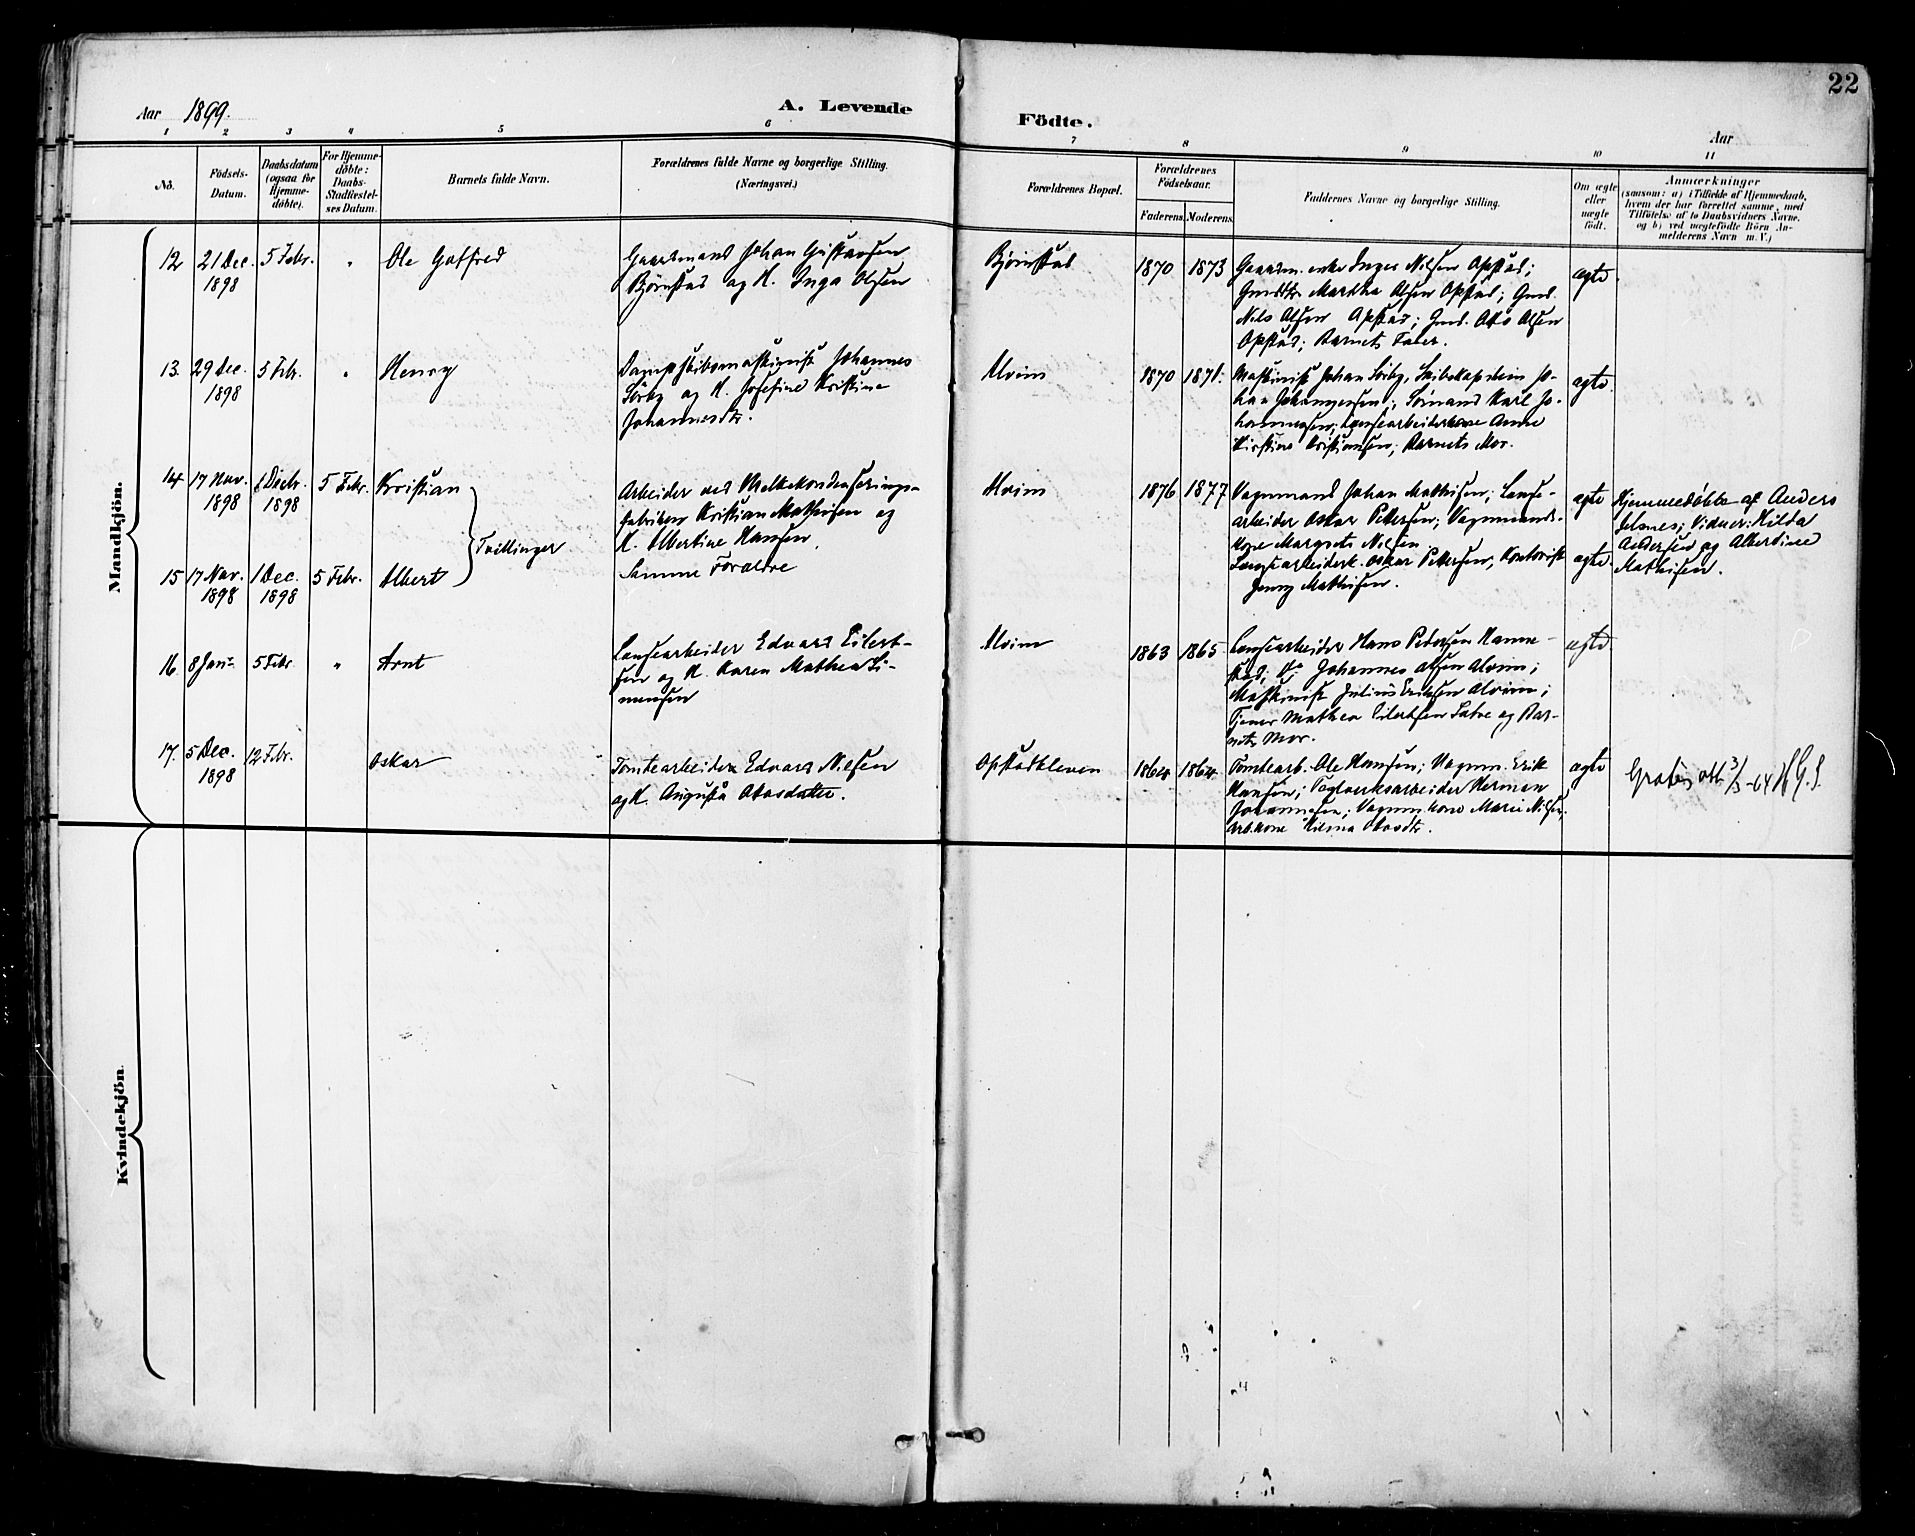 22
Aar 1899.
A. Levende
Födte.
Aar
1 2 3 4 5 6 7 8 9 10 11
No.
Födsels-
Datum.
Daabsdatum
(ogsaa for
Hjemme-
döbte).
For Hjemme-
döbte:
Daabs-
Stadfæstel-
ses Datum.
Barnets fulde Navn.
Forældrenes fulde Navne og borgerlige Stilling.
(Næringsvei.)
Forældrenes Bopæl.
Forældrenes
Födselsaar.
Faderens. Moderens.
Faddernes Navne og borgerlige Stilling.
Om ægte
eller
uægte
födt.
Anmærkninger
(saasom: a) i Tilfælde af Hjemmedaab,
hvem der har forrettet samme, med
Tilföielse af to Daabsvidners Navne.
og b) ved uægtefödte Börn An-
melderens Navn m. V.)
Mandkjön.
12 21 Dec. 1898
5 Febr. "
Ole Gotfred
Gaardmand Johan Gustavsen
Bjørnstad og H. Inga Olsen
Bjørnstad
1870 1873
Gaardm. enke Inger Nilsen Opstad;
Gmdtr Martha Olsen Opstad; Gmd.
Nils Olsen Opstad; Gmd. Otto Olsen
Opstad; Barnets Fader.
ægte
13. 29 Dec. 1898
5 Febr. "
Henry
Dampskibsmaskinist Johannes
Sørby og H. Josefine Kristine
Johannesdtr.
Alvim
1870 1871.
Maskinist Johan Sørby, Skibskaptein Jo-
han Johannesen; Sømand Karl Jo-
hannesen; Landsearbeiderkone Anne
Kirstine Kristiansen; Barnets Mor.
ægte
14 17 Nov. 1898
1 Decbr. 1898
5 Febr.
Kristian
Tvillinger
Arbeider ved Melkekondenserings-
fabriken Kristian Mathisen og
H. Albertine Hansen.
Alvim
1876 1877
Vognmand Johan Mathisen; Lense-
arbeider Oskar Pettersen; Vognmands-
kone Margrete Nilsen
ægte
Hjemmedøbte af Anders
Jelsnes; Vidner: Hilda
Andersen og Albertine
Mathisen.
15 17 Nov. 1898
1 Dec. 1898
5 Febr.
Albert
Samme Forældre
Lensearbeiderk. Oskar Pettersen, Kontorist
Jenny Mathisen.
ægte.
16. 8 Jan.
5 Febr. "
Arnt
Lensearbeider Edvard Eilert-
sen og H. Karen Mathea Si-
mensen
Alvim
1863 1865
Lensearbeider Hans Pedersen Hanne-
stad; do Johannes Olsen Alvim;
Maskinist Julius Eriksen Alvim;
Tjener Mathea Eilertsen Satve og Bar-
nets Mor.
ægte
17. 5 Dec. 1898
12 Febr.
Oskar
Tomtearbeider Edvard Nilsen
og H. Augusta Ottosdatter.
Opstadkleven
1864 1864
Tomtearb. Ole Hansen; Vognm. Erik
Hansen; Teglverksarbeider Herman
Johannesen; Vognm. kone Marie Nilsen;
Arb.kone Hilma Ottosdtr.
ægte
Gratis att. 3/3-64 H.G.S.
Kvindekjön.